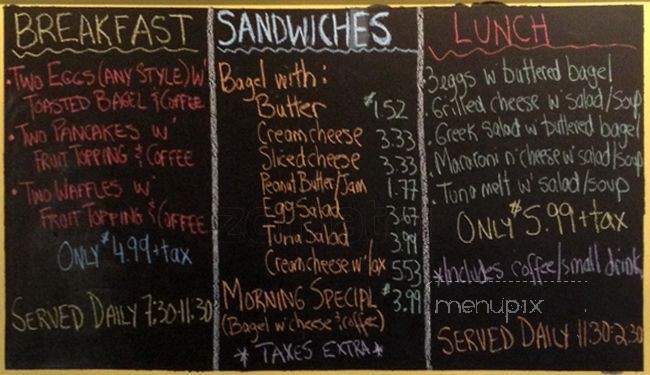 BREAKFAST
• Two Eggs (Any Style) w'
Toasted Bagel & Coffee
• Two Pancakes w'
Fruit Topping & Coffee
• Two Waffles w'
Fruit Topping & Coffee
Only $4.99 + tax
Served Daily 7:30-11:30
SANDWICHES
Bagel with:
Butter $1.52
Cream cheese 3.33
Sliced cheese 3.33
Peanut Butter/Jam 1.77
Egg Salad 3.67
Tuna Salad 3.99
Cream cheese w' lox 5.53
Morning Special $3.99
(Bagel w' cheese & coffee)
* Taxes Extra *
LUNCH
• 3 eggs w' buttered bagel
• Grilled cheese w' salad/soup
• Greek salad w' buttered bagel
• Macaroni n' cheese w' salad/soup
• Tuna melt w' salad/soup
Only $5.99 + tax
*Includes coffee/small drink
menupix
Served Daily 11:30-2:30